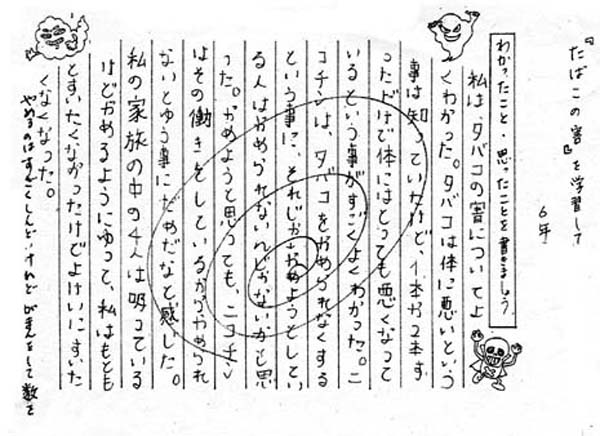 『たばこの害』を学習して
6年
わかったこと・思ったことを書きましょう
私は、タバコの害についてよ
くわかった。タバコは体に悪いという
事は知っていたけど、1本や2本す
っただけで体にはとっても悪くなって
いるという事がすごくよくわかった。ニ
コチンは、タバコをやめられなくする
という事に、それじゃやめようとしてい
る人はやめられないんじゃないかと思
った。やめようと思っても、ニコチン
はその働きをしているからやめられ
ないとゆう事にだめだなと感した。
私の家族の中の4人は吸っている
けどやめるようにゆって、私はもとも
とすいたくなかったけどよけいにすいた
くなくなった。
やめるのはすごくしんどいけれどがまんをして数を